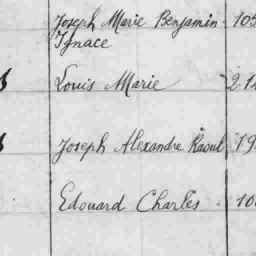 Joseph Marie Benjamin 105
Ignace
Louis Marie 214
Joseph Alexandre Raoul 19
Edouard Charles . 10